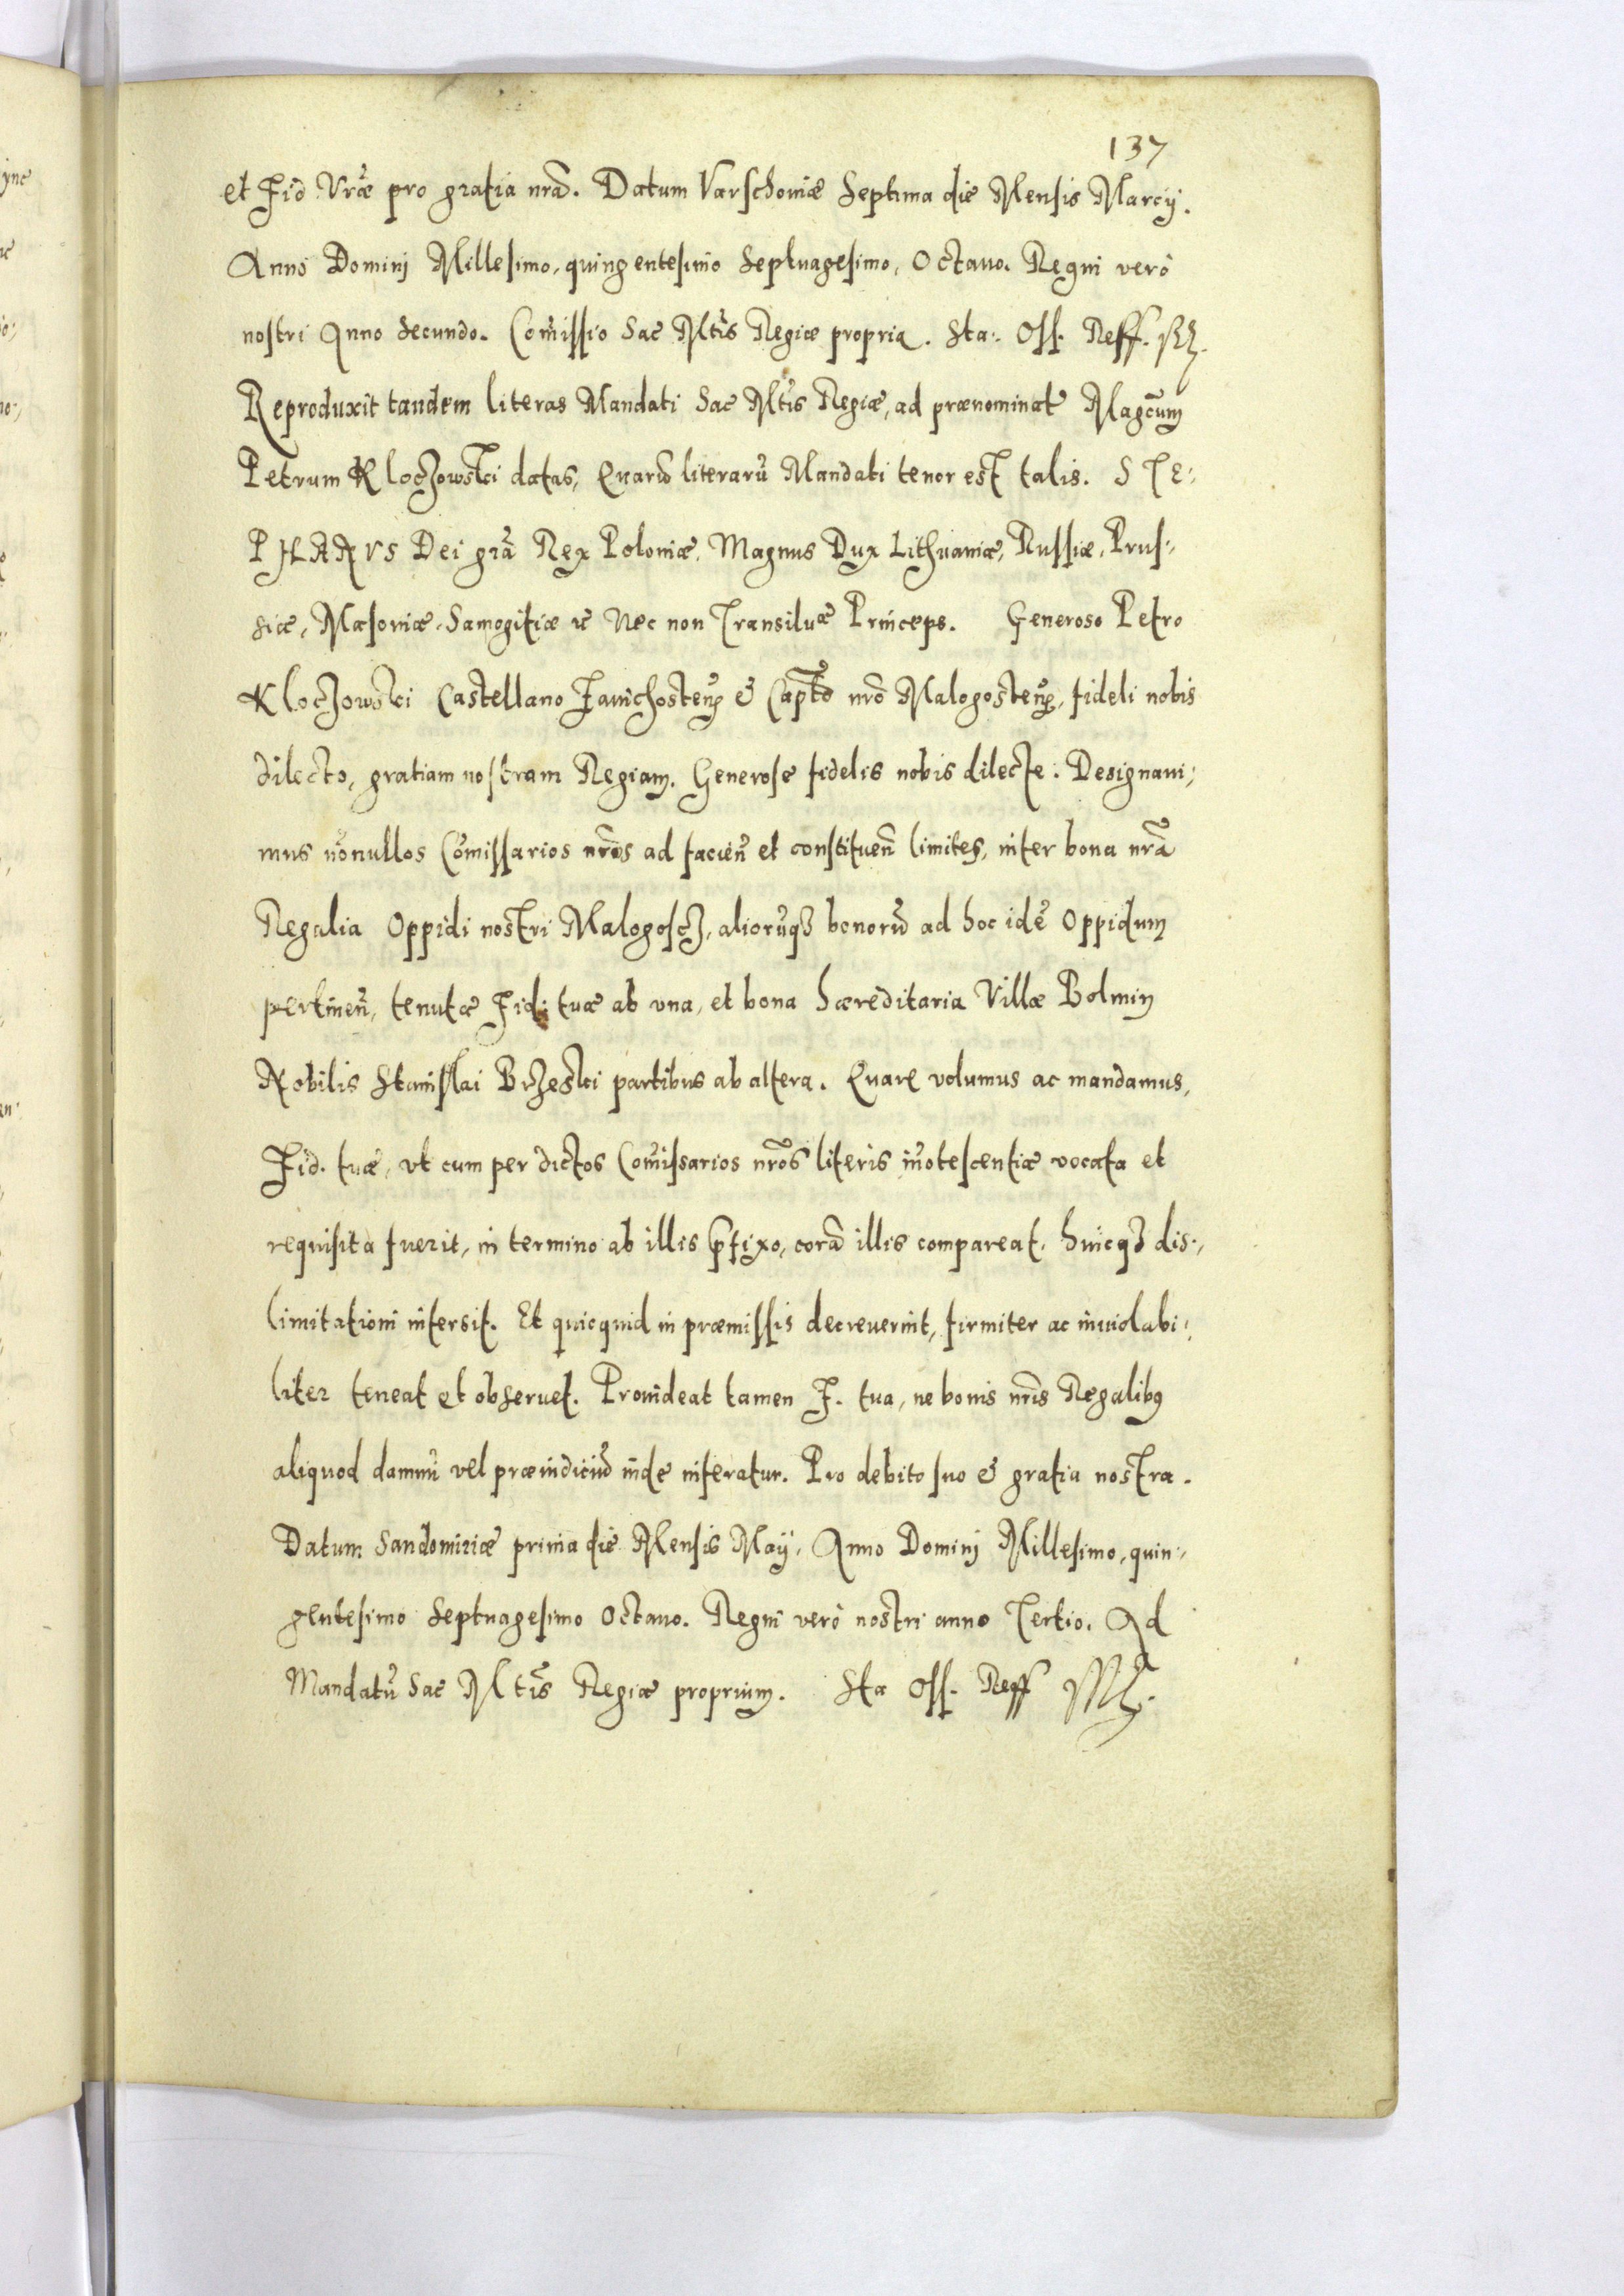 137
et Fid Vr̃æ pro gratia nrã. Datum Varschoviæ Septima die Mensis Marcij.
Anno Dominj Millesimo, quingentesimo Septuagesimo, Octauo. Regni verò
nostri Anno Secundo. Com̃issio Sac Mtĩs Regiæ propria. Sta: Oss. Reff. sst.
Reproduxit tandem literas Mandati Sac Mtĩs Regiæ, ad prænominat Magc̃um
Petrum Kloczowski datas, Quarũ literarũ Mandati tenor est talis. STE:
PHANVS Dei grã Rex Poloniæ, Magnus Dux Lithuaniæ, Russiæ, Prus:
siæ, Masoviæ, Samogitiæ &c Nec non Transiluæ Princeps. Generoso Petro
Kloczowski Castellano Zauichosteñ & Captõ nrõ Malogosteñ, fideli nobis
dilecto, gratiam nostram Regiam. Generose fidelis nobis dilecte. Designaui:
mus nõnullos Com̃issarios nrõs ad facieñ et constitueñ limites, inter bona nrã
Regalia Oppidi nostri Malogoscz, aliorũqz bonorũ ad hoc idẽ Oppidum
pertineñ, tenutæ Fid: tuæ ab vna, et bona hæreditaria Villæ Bolmin
Nobilis Stanislai Brzeski partibus ab altera. Quare volumus ac mandamus,
Fid. tuæ, vt cum per dictos Com̃issarios nrõs literis iñotescentiæ vocata et
requisita fuerit, in termino ab illis p̃fixo, corã illis compareat, huicqz dis:
limitationi intersit. Et quicquid in præmissis decreuerint, firmiter ac inuiolabi:
liter teneat et obseruet. Prouideat tamen F. tua, ne bonis nrĩs Regalibꝰ
aliquod damnũ vel præiudiciũ inde inferatur. Pro debito suo & gratia nostra.
Datum Sandomiriæ prima die Mensis Maÿ, Anno Dominj Millesimo, quin:
gentesimo Septuagesimo Octauo. Regni verò nostri anno Tertio. Ad
Mandatũ Sac Mtĩs Regiæ proprium. Sta Oss. Reff